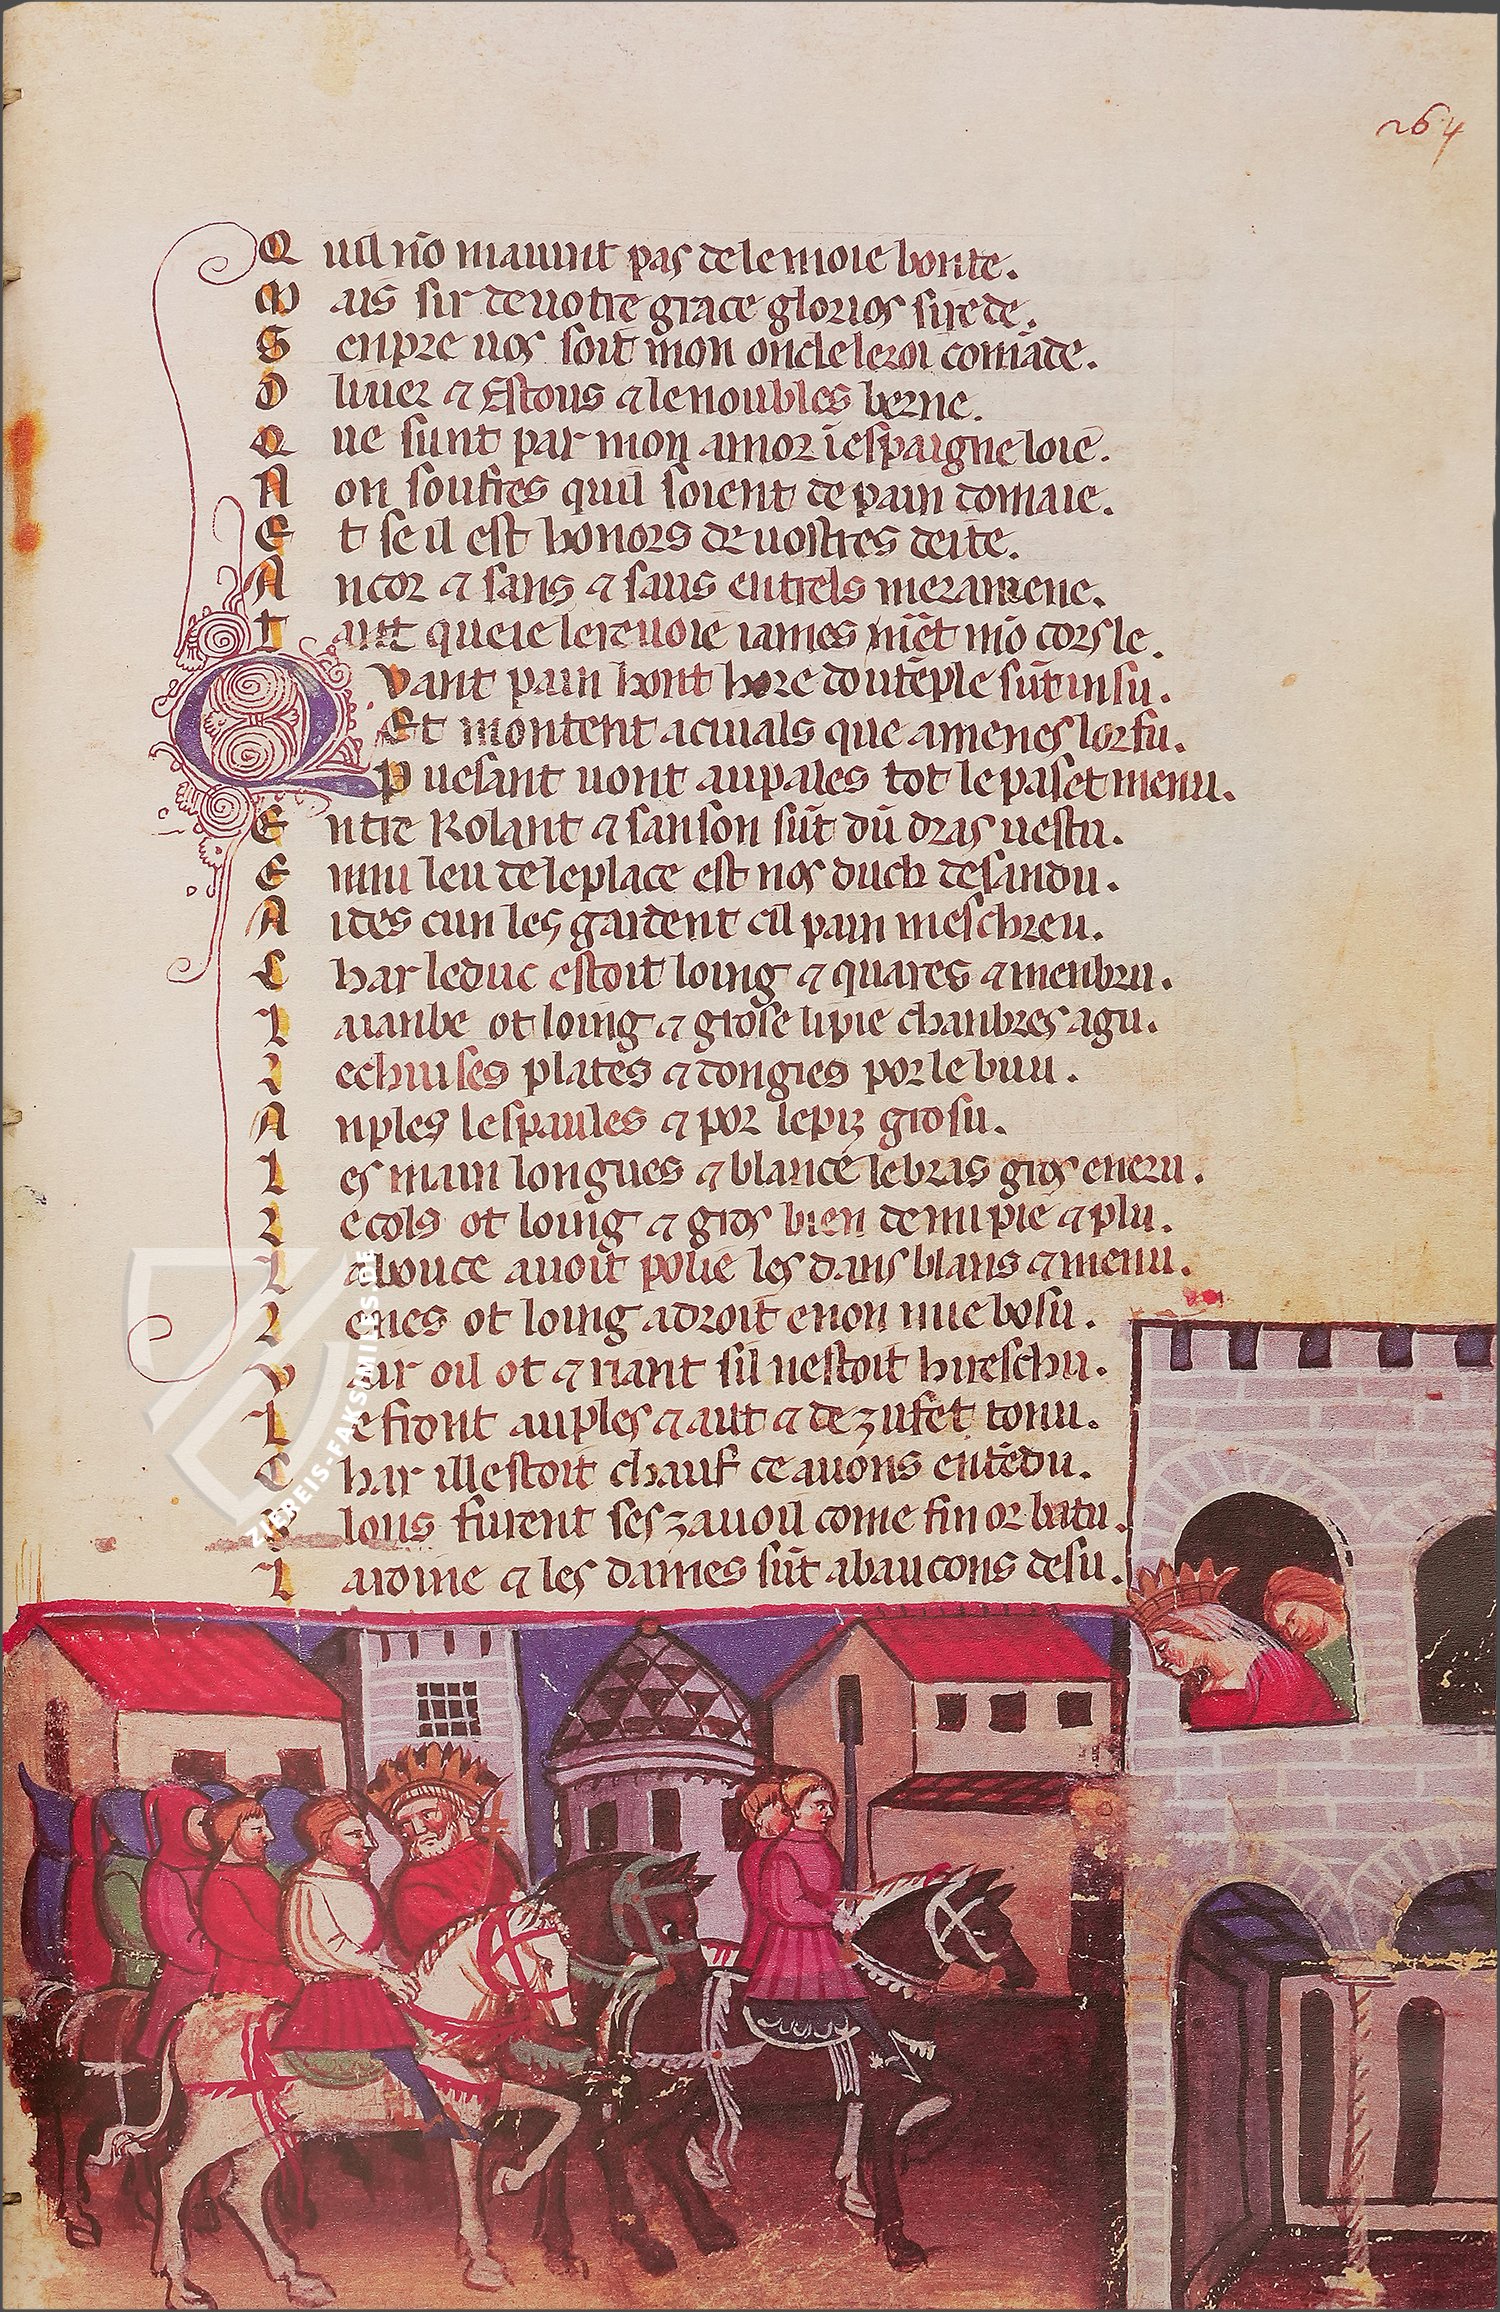 264
Qucil nō mauint pas de le moie bonte.
Mais sir de uotre grace glorios sire de.
Senpre uos soit mon oncle le roi comāde.
Oliuer ⁊ Estous ⁊ le noubles berne.
Que sunt par mon amor ī espaigne loiē.
Non soufres quil soient de pain domaie.
Et se il est honors de uostres deite.
Ancor ⁊ sans ⁊ saus entrels meramene.
Tant que ie le reuoie iames niēt mō cors le.
Qvant pain hont hore dou tēple sūt insu.
Et montent a ciuals que amenes lor fu.
Puesant uont au pales tot le paset menu.
Entre Rolant ⁊ sanson sūt dū dras uestu.
Emiu leu de le place est nos duch desandu.
Aides cun les gardent cil pain meschreu.
Char le duc estoit loing ⁊ quares ⁊ menbru.
Lauanbe ot loing ⁊ grose li pie chanbres agu.
Lechuises plates ⁊ dongies por le buu.
Anples lespaules ⁊ por le piz grosu.
Les main longues ⁊ blance le bras gros eneru.
Le cols ot loing ⁊ gros bien demi pie ⁊ plu.
La bouce auoit polie les dans blans ⁊ menu.
Le nes ot loing adroit e non mie bosu.
Vair oil ot ⁊ riant sil uestoit hireschu.
Le front auples ⁊ aut ⁊ dezufet tonu.
Char ill estoit chauf ce auons entēdu.
Blous furent ses zauoil come fin or batu.
Laroine ⁊ les dames sūt abaucons desu.
ZIEREIS-FAKSIMILES.DE